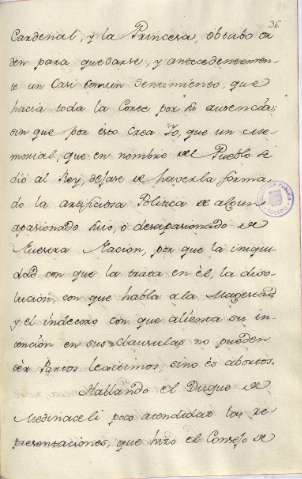 36
Cardenal, y la Princesa, obtubo or
den para quedarse, y antecedentemen
te un Casi comun Sentimiento, que
hacia toda la Corte por su ausencia;
sin que por esto Crea Yo, que un me
morial, que en nombre del Pueblo se
dió al Rey, dejase de haverla forma
do la artificiosa Politica de algun
apasionado hixo, ó desapasionado de
Nuestra Nacion, por que la iniqui
dad con que la trata en él, la diso
lucion, con que habla a la Magestad
y el indecoro con que alienta su in
tencion en sus Clausulas no pueden
ser Partos lexitimos, sino es abortos.
Hallando el Duque de
Medinaceli poco atendidas las re
presentaciones, que hizo el Consejo de